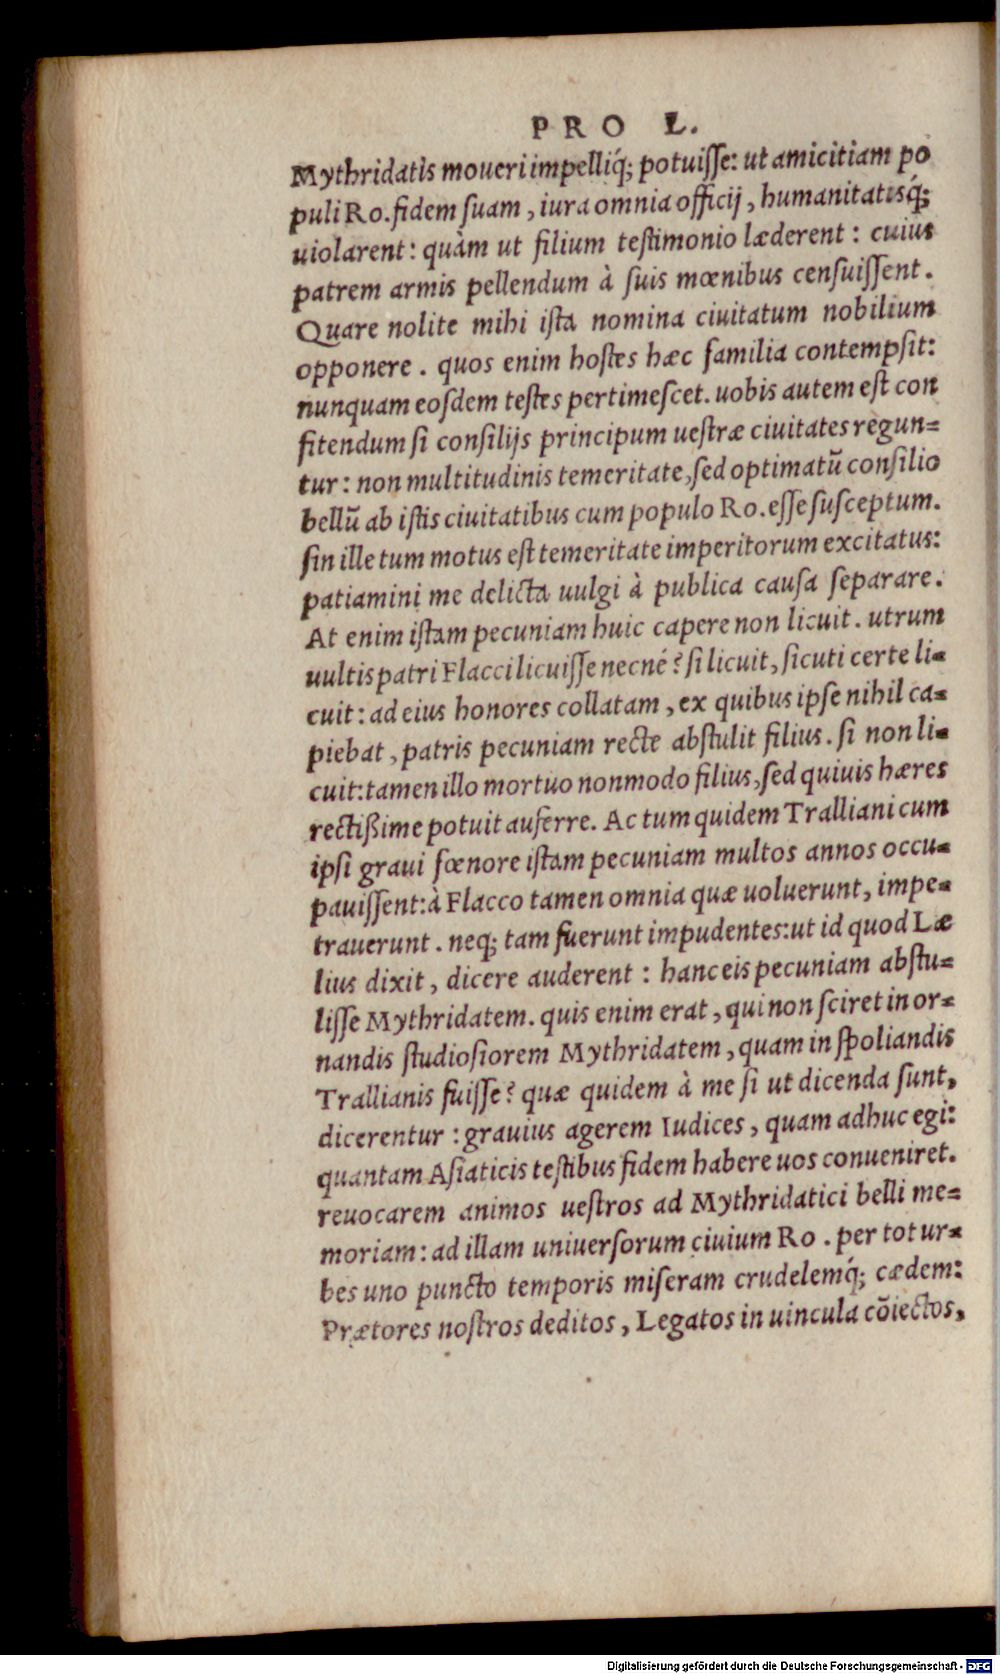 PRO L.
Mythridatis moueri impelliq́; potuisse: ut amicitiam po
puli Ro. fidem suam, iura omnia officij, humanitatisq́;
uiolarent: quàm ut filium testimonio læderent: cuius
patrem armis pellendum à suis mœnibus censuissent.
Quare nolite mihi ista nomina ciuitatum nobilium
opponere. quos enim hostes hæc familia contempsit:
nunquam eosdem testes pertimescet. uobis autem est con
fitendum si consilijs principum uestræ ciuitates regun=
tur: non multitudinis temeritate, sed optimatũ consilio
bellũ ab istis ciuitatibus cum populo Ro. esse susceptum.
sin ille tum motus est temeritate imperitorum excitatus:
patiamini me delicta uulgi à publica causa separare.
At enim istam pecuniam huic capere non licuit. utrum
uultis patri Flacci licuisse necné? si licuit, sicuti certe li=
cuit: ad eius honores collatam, ex quibus ipse nihil ca=
piebat, patris pecuniam recte abstulit filius. si non li=
cuit: tamen illo mortuo nonmodo filius, sed quiuis hæres
rectißime potuit auferre. Ac tum quidem Tralliani cum
ipsi graui fœnore istam pecuniam multos annos occu=
pauissent: à Flacco tamen omnia quæ uoluerunt, impe=
trauerunt. neq; tam fuerunt impudentes: ut id quod Læ
lius dixit, dicere auderent: hanc eis pecuniam abstu=
lisse Mythridatem. quis enim erat, qui non sciret in or=
nandis studiosiorem Mythridatem, quam in spoliandis
Trallianis fuisse? quæ quidem à me si ut dicenda sunt,
dicerentur: grauius agerem Iudices, quam adhuc egi:
quantam Asiaticis testibus fidem habere uos conueniret.
reuocarem animos uestros ad Mythridatici belli me=
moriam: ad illam uniuersorum ciuium Ro. per tot ur=
bes uno puncto temporis miseram crudelemq́; cædem:
Prætores nostros deditos, Legatos in uincula cõiectos,
Digitalisierung gefördert durch die Deutsche Forschungsgemeinschaft - DFG